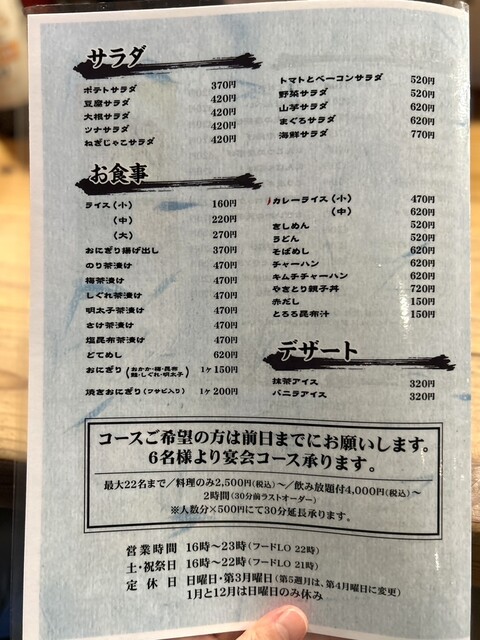 サラダ
ポテトサラダ 370円
豆腐サラダ 420円
大根サラダ 420円
ツナサラダ 420円
ねぎじゃこサラダ 420円
トマトとベーコンサラダ 520円
野菜サラダ 520円
山芋サラダ 620円
まぐろサラダ 620円
海鮮サラダ 770円
お食事
ライス(小) 160円
(中) 220円
(大) 270円
おにぎり揚げ出し 370円
のり茶漬け 470円
梅茶漬け 470円
しぐれ茶漬け 470円
明太子茶漬け 470円
さけ茶漬け 470円
塩昆布茶漬け 470円
どてめし 620円
おにぎり(おかか・梅・昆布 鮭・しぐれ・明太子) 1ヶ150円
焼きおにぎり(ワサビ入り) 1ヶ200円
カレーライス(小) 470円
(中) 620円
きしめん 520円
うどん 520円
そばめし 620円
チャーハン 620円
キムチチャーハン 620円
やきとり親子丼 720円
赤だし 150円
とろろ昆布汁 150円
デザート
抹茶アイス 320円
バニラアイス 320円
コースご希望の方は前日までにお願いします。
6名様より宴会コース承ります。
最大22名まで/料理のみ2,500円(税込)〜/飲み放題付4,000円(税込)〜
2時間(30分前ラストオーダー)
※人数分×500円にて30分延長承ります。
営業時間 16時〜23時(フードLO 22時)
土・祝祭日 16時〜22時(フードLO 21時)
定休日 日曜日・第3月曜日(第5週月は、第4月曜日に変更)
1月と12月は日曜日のみ休み